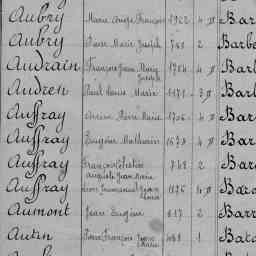 Aubry Marie Ange François 1922 4 Bar
Aubry Pierre Marie Joseph 761 2 Barbe
Audrain François Jean Marie Joseph 1784 4 Barb
Audren Paul Louis Marie 1171 3 Barb
Auffray Pierre Marie 1706 4 Bar
Auffray Eugène Mathurin 1678 4 Bar
Auffray François 748 2 Bar
Auguste Jean Marie
Auffray Léon Emmanuel Jean 1876 4 Bar
Aumont Jean Eugène 817 2 Barr
Autin Pierre François Jean Marie 488 1 Bata